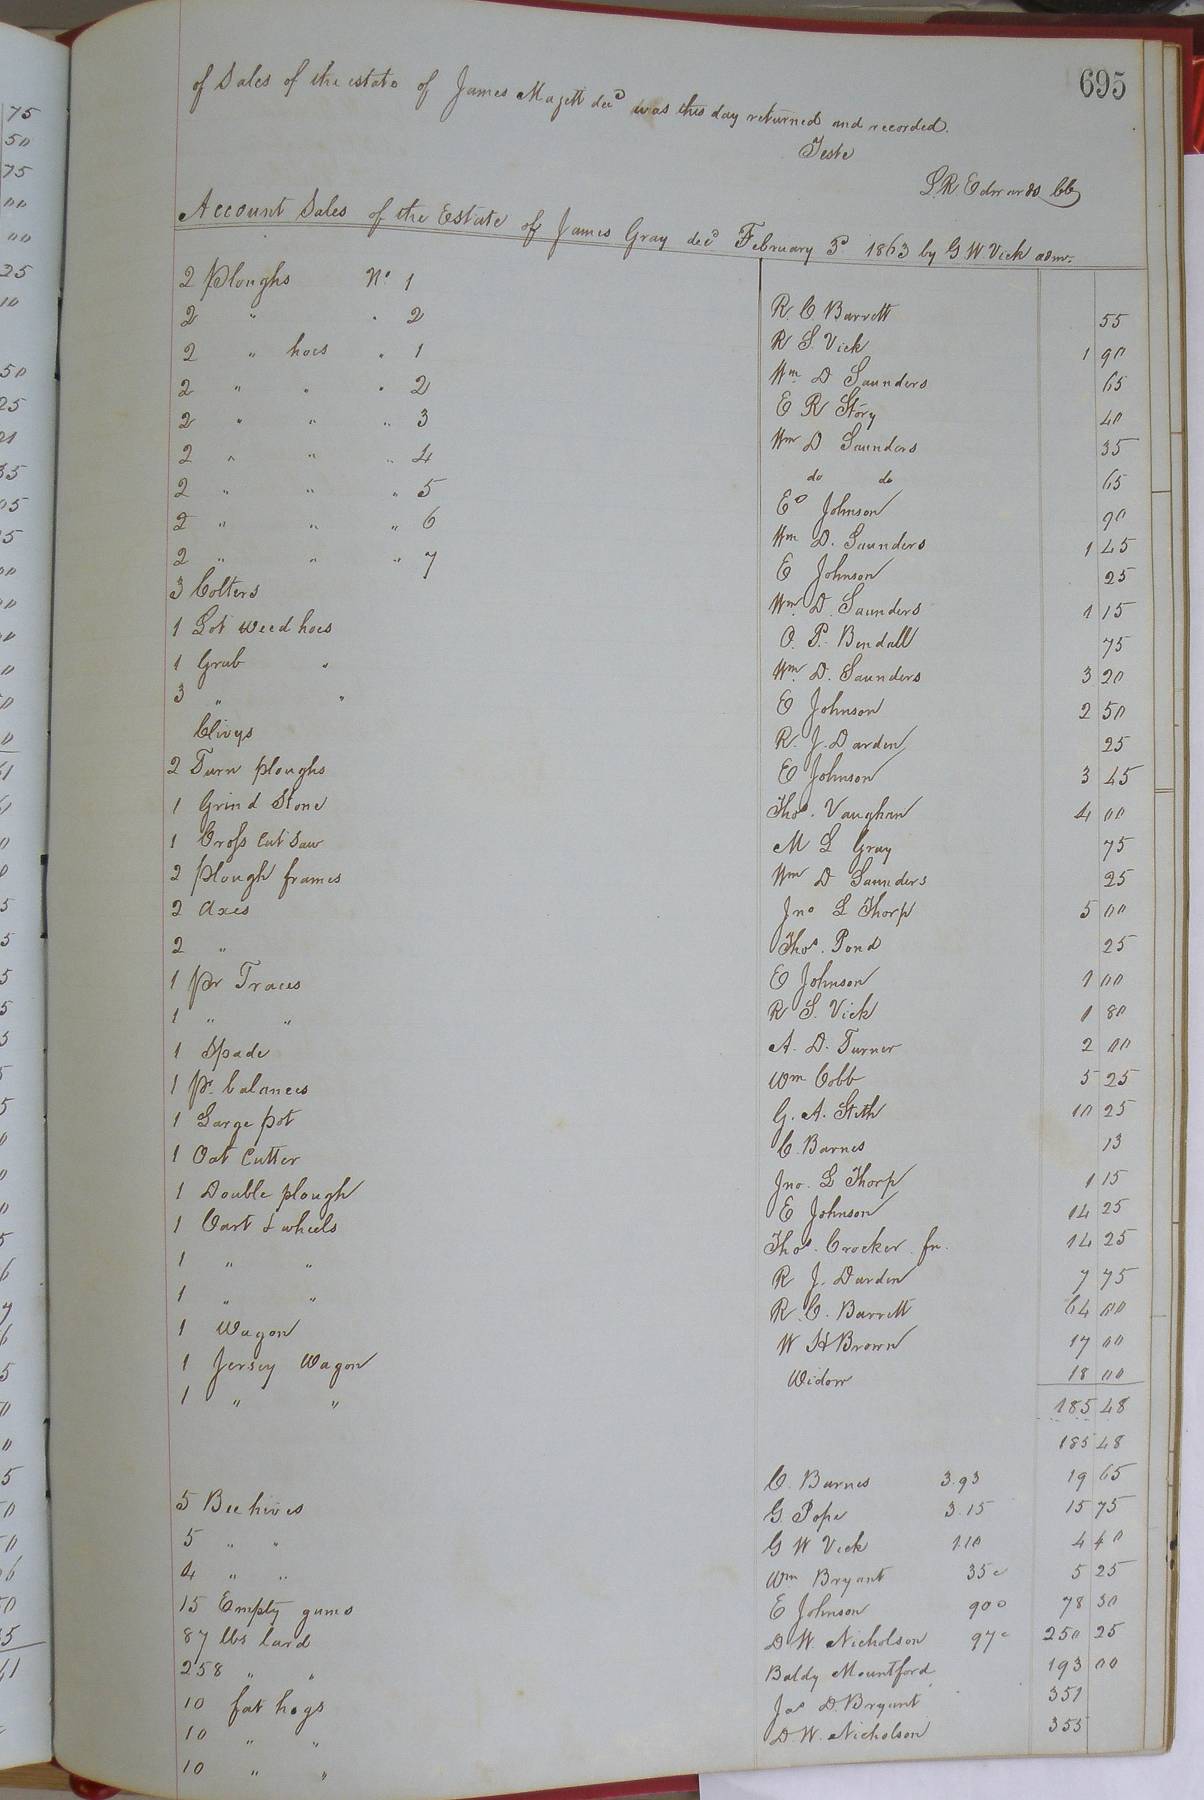 695
of Sales of the estate of James Majett decd was this day returned and recorded.
Teste
L.R. Edwards CC
Account Sales of the Estate of James Gray decd February 3d 1863 by G W Vick admr.
2 Ploughs No 1 R. C. Barrett 55
2 " " 2 R S. Vick 1 90
2 " hoes " 1 Wm D Saunders 65
2 " " " 2 E R Story 40
2 " " " 3 Wm D Saunders 35
2 " " " 4 do do 65
2 " " " 5 Eo Johnson 90
2 " " " 6 Wm D. Saunders 1 45
2 " " " 7 E Johnson 25
3 Colters Wm D. Saunders 1 15
1 Lot weed hoes O. P. Bendall 75
1 Grub " Wm D. Saunders 3 20
3 " " E Johnson 2 50
Clivys R. J. Darden 25
2 Turn ploughs E Johnson 3 45
1 Grind Stone Thos. Vaughan 4 00
1 Cross cut Saw M L Gray 75
2 plough frames Wm D Saunders 25
2 Axes Jno L Thorp 5 00
2 " Thos. Pond 25
1 pr Traces E Johnson 1 00
1 " " R S. Vick 1 80
1 Spade A. D. Turner 2 00
1 pr. balances Wm Cobb 5 25
1 Large pot G. A. Stith 10 25
1 Oat Cutter C. Barnes 13
1 Double plough Jno. L Thorp 1 15
1 Cart & wheels E Johnson 14 25
1 " " Thos. Crocker Jr. 14 25
1 " " R J. Darden 7 75
1 Wagon R. C. Barrett 64 00
1 Jersey Wagon W H Brown 17 00
1 " " Widow 18 00
185 48
185 48
5 Bee hives C. Barnes 3.93 19 65
5 " " G. Pope 3.15 15 75
4 " " G W Vick 1.10 4 40
15 Empty gums Wm Bryant 35c 5 25
87 lbs lard E Johnson 90c 78 30
258 " " D. W. Nicholson 97c 250 25
10 fat hogs Baldy Mountford 193 00
10 " " Jas D. Bryant 351
10 " " D. W. Nicholson 355